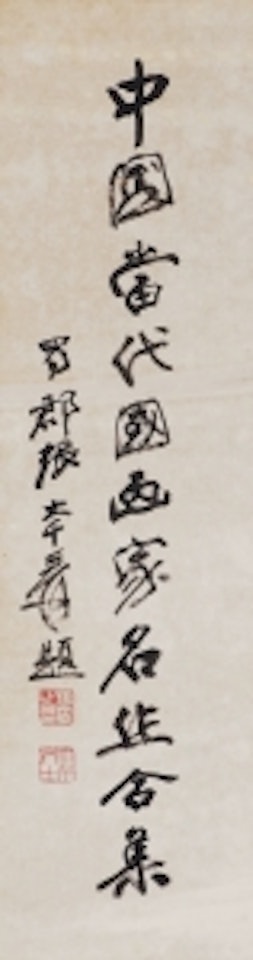 中国當代國画家名作合集
蜀郡張大千爰題